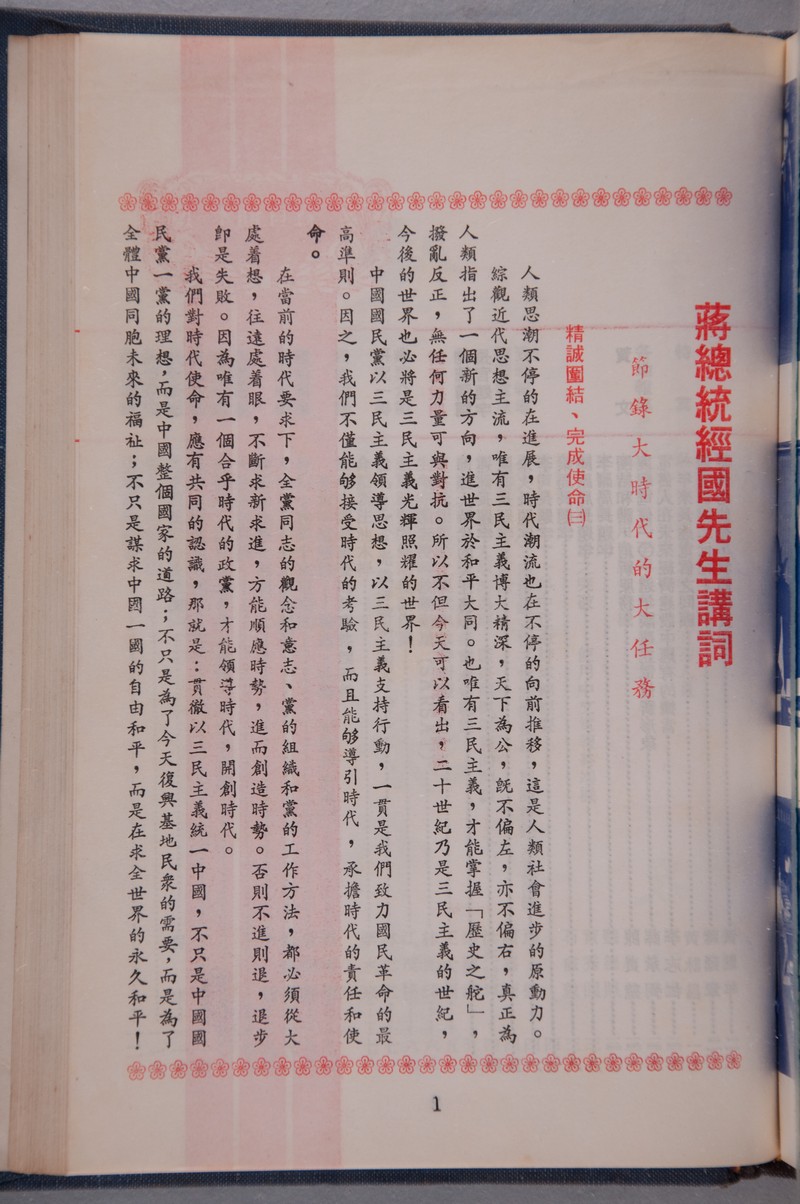 蔣總統經國先生講詞
節錄大時代的大任務
精誠團結、完成使命㈢
人類思潮不停的在進展，時代潮流也在不停的向前推移，這是人類社會進步的原動力。
綜觀近代思想主流，唯有三民主義博大精深，天下為公，既不偏左，亦不偏右，真正為
人類指出了一個新的方向，進世界於和平大同。也唯有三民主義，才能掌握「歷史之舵」，
撥亂反正，無任何力量可與對抗。所以不但今天可以看出，二十世紀乃是三民主義的世紀，
今後的世界也必將是三民主義光輝照耀的世界！
中國國民黨以三民主義領導思想，以三民主義支持行動，一貫是我們致力國民革命的最
高準則。因之，我們不僅能够接受時代的考驗，而且能够導引時代，承擔時代的責任和使
命。
在當前的時代要求下，全黨同志的觀念和意志、黨的組織和黨的工作方法，都必須從大
處着想，往遠處着眼，不斷求新求進，方能順應時勢，進而創造時勢。否則不進則退，退步
卽是失敗。因為唯有一個合乎時代的政黨，才能領導時代，開創時代。
我們對時代使命，應有共同的認識，那就是：貫徹以三民主義統一中國，不只是中國國
民黨一黨的理想，而是中國整個國家的道路；不只是為了今天復興基地民衆的需要，而是為了
全體中國同胞未來的福祉；不只是謀求中國一國的自由和平，而是在求全世界的永久和平！
1